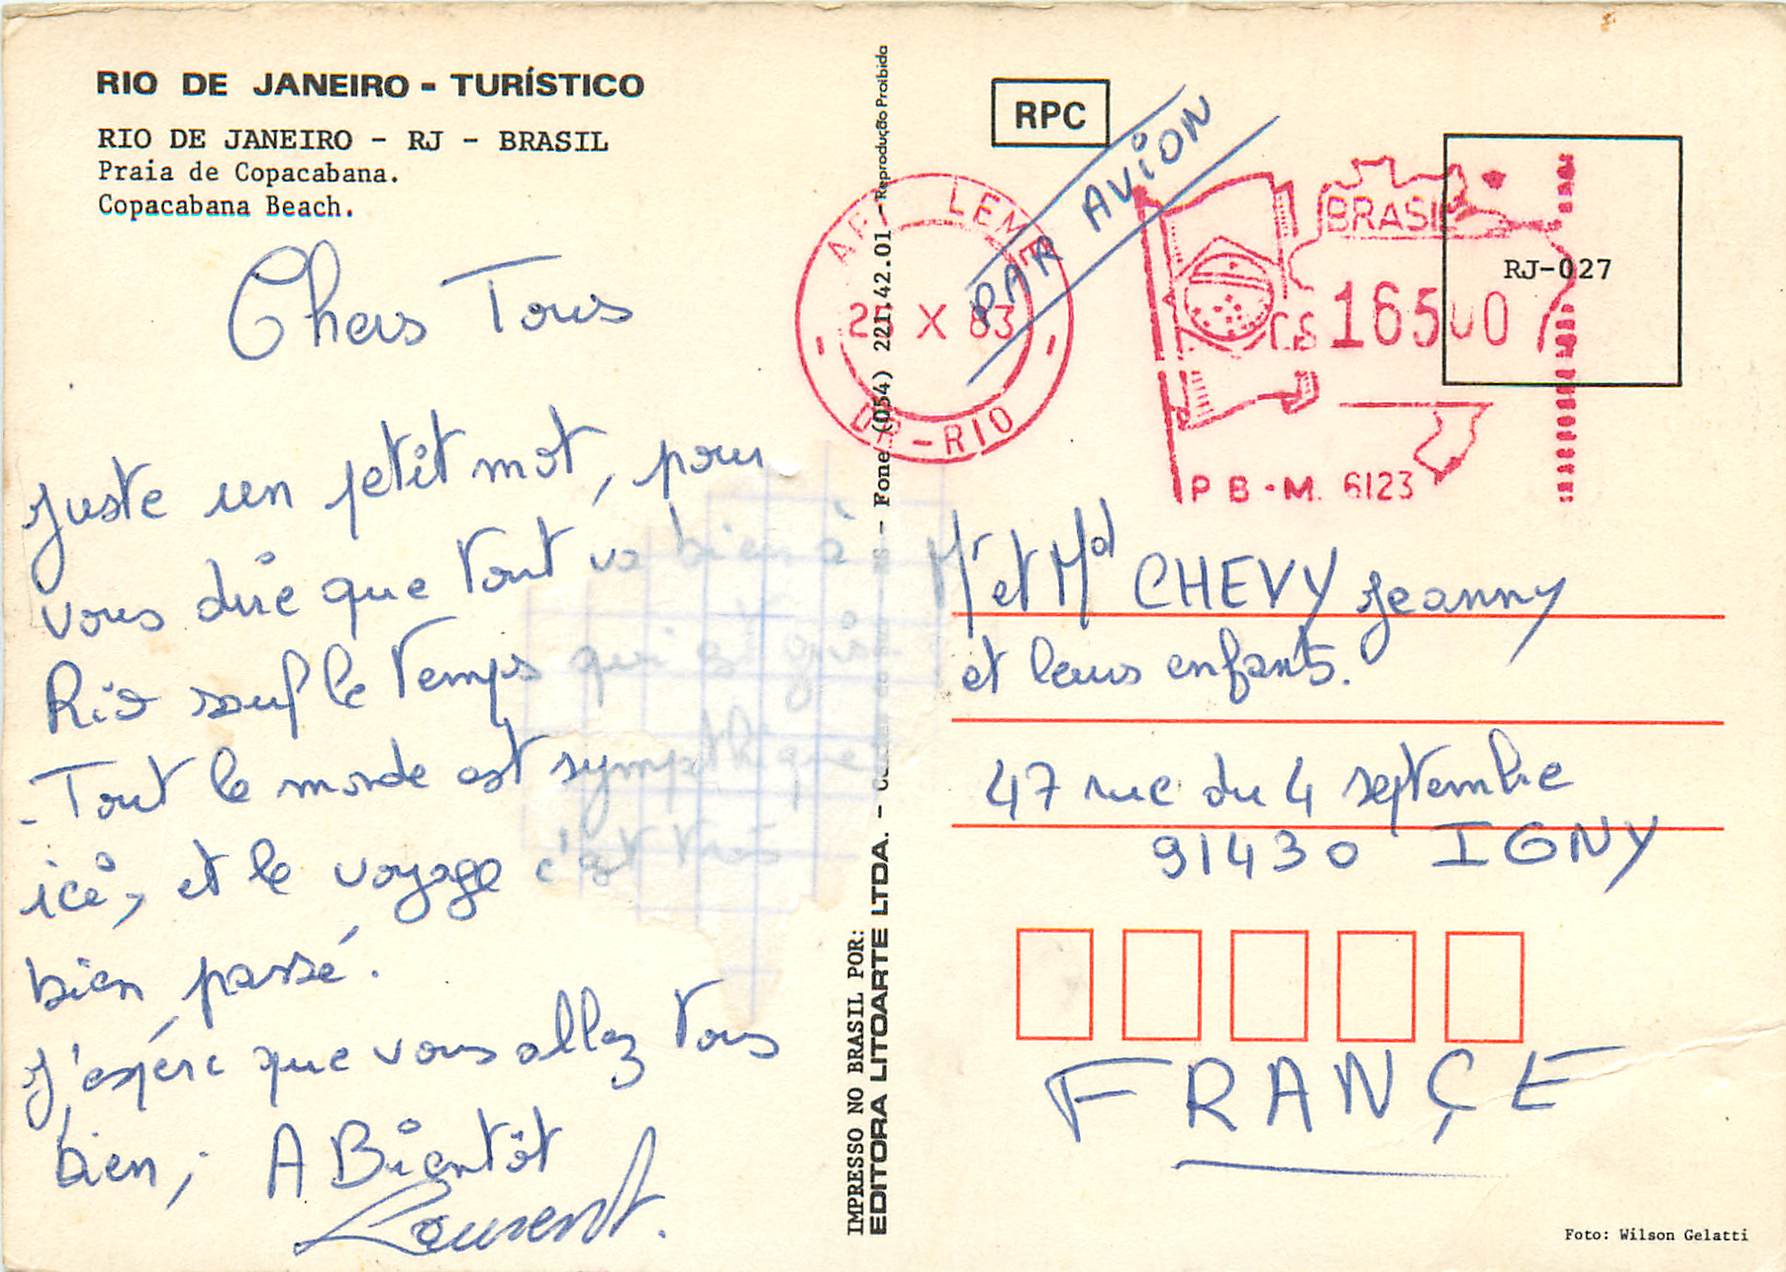 RIO DE JANEIRO - TURÍSTICO
RIO DE JANEIRO - RJ - BRASIL
Praia de Copacabana.
Copacabana Beach.
Chers Tous
Juste un petit mot, pour
vous dire que tout va bien à
Rio sauf le temps qui est gris
- Tout le monde est sympathique
ici, et le voyage c'est très
bien passé.
J'espère que vous allez tous
bien, A Bientôt
Laurent.
IMPRESSO NO BRASIL POR:
EDITORA LITOARTE LTDA. - Fone (054) 221.42.01 - Reprodução Proibida
RPC
PAR AVION
LEME
X 83
DR-RIO
BRASIL
16500
P B - M. 6123
RJ-027
Mr et Md CHEVY Jeanny
et leurs enfants.
47 rue du 4 septembre
91430 IGNY
FRANÇE
Foto: Wilson Gelatti